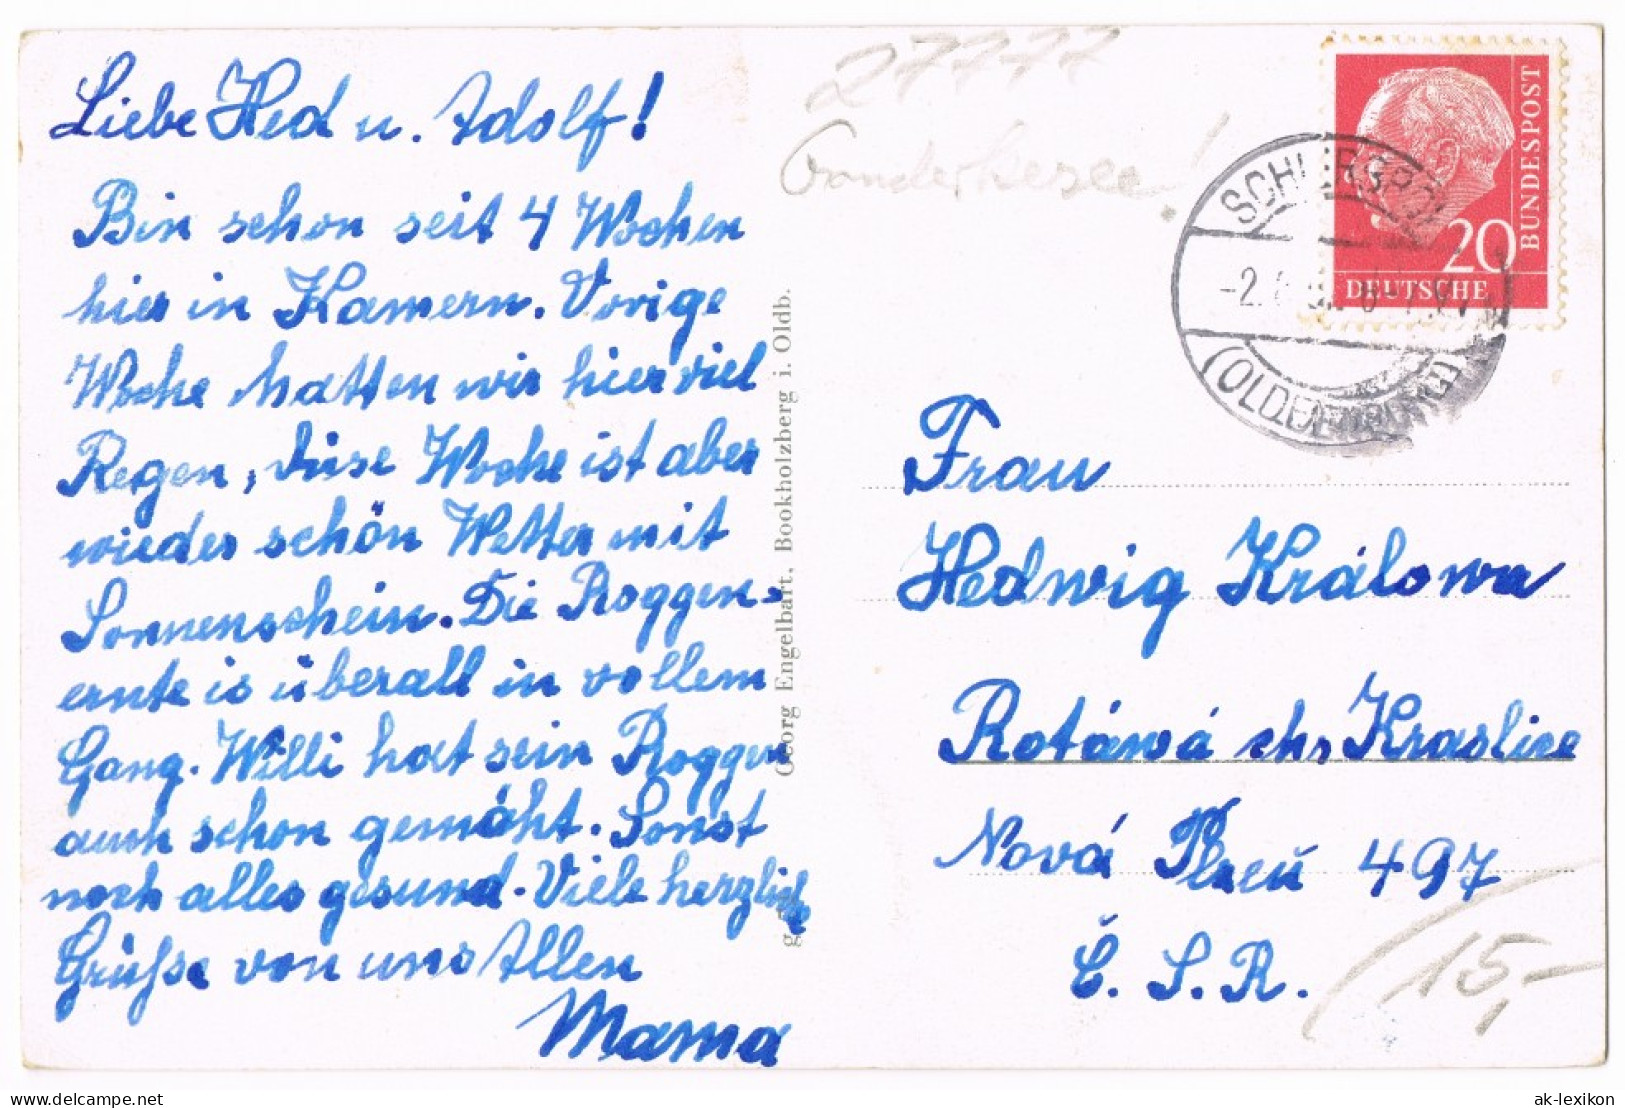 Liebe Hed u. Adolf!
Bin schon seit 4 Wochen
hier in Kamern. Vorige
Woche hatten wir hier viel
Regen, diese Woche ist aber
wieder schön Wetter mit
Sonnenschein. Die Roggen-
ernte is überall in vollem
Gang. Willi hat sein Roggen
auch schon gemäht. Sonst
noch alles gesund. Viele herzliche
Grüße von uns Allen
Mama
Georg Engelbart, Bookholzberg i. Oldb.
27777
DEUTSCHE
BUNDESPOST
20
(OLDENBURG)
Frau
Hedwig Králowa
Rotáwá chs Kraslice
Nová Plzeň 497
Č. S. R.
15,-
delcampe.net
The World's Greatest Collectors Market
ak-lexikon